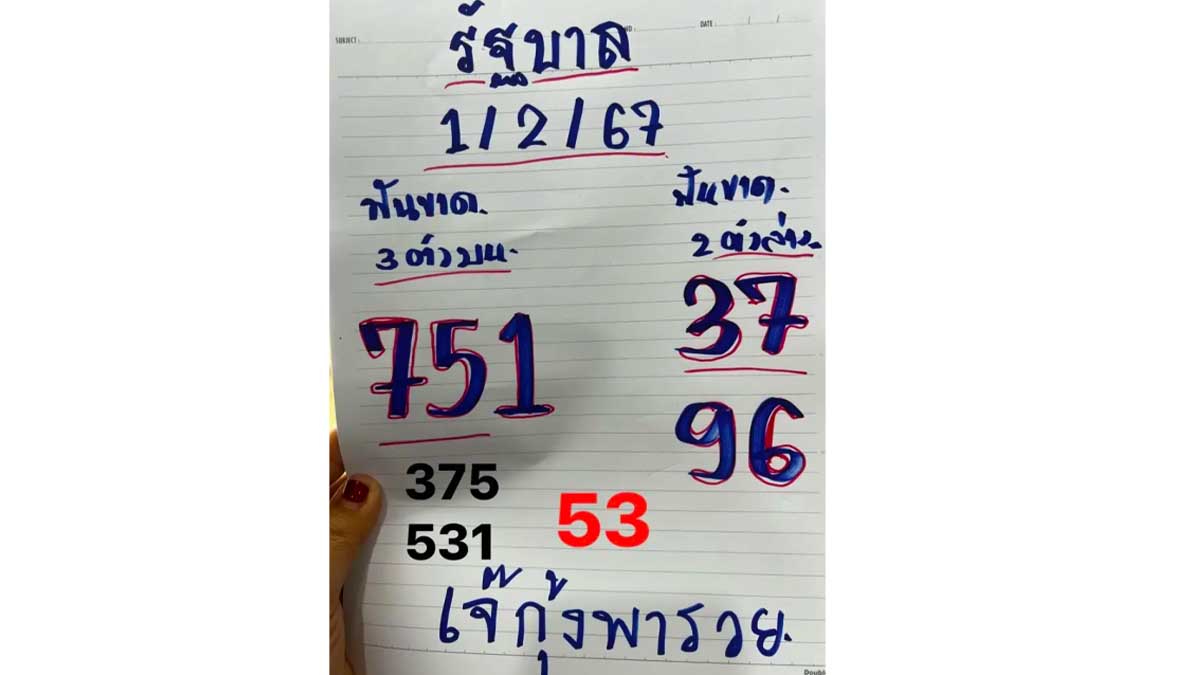 SUBJECT :
NO :
DATE : / /
รัฐบาล
1/2/67
ฟันขาด.
3ตัวบน.
751
ฟันขาด.
2 ตัวล่าง.
37
96
375
531
53
เจ๊กุ้งพารวย.